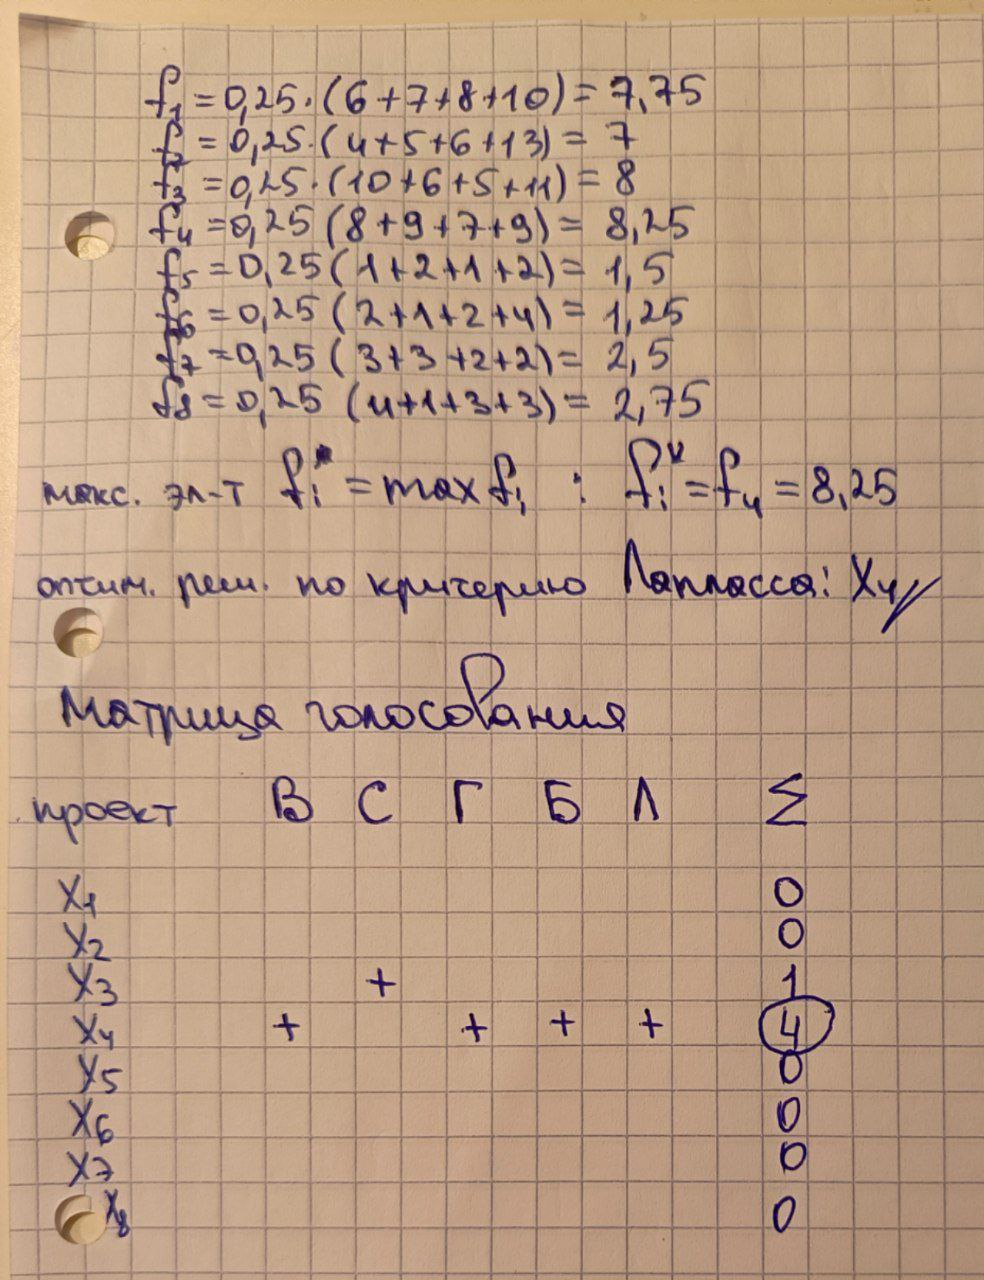 f₁ = 0,25·(6+7+8+10) = 7,75
f₂ = 0,25·(4+5+6+13) = 7
f₃ = 0,25·(10+6+5+11) = 8
f₄ = 0,25 (8+9+7+9) = 8,25
f₅ = 0,25 (1+2+1+2) = 1,5
f₆ = 0,25 (2+1+2+4) = 1,25
f₇ = 0,25 (3+3+2+2) = 2,5
f₈ = 0,25 (4+1+3+3) = 2,75
макс. эл-т fᵢ* = max fᵢ : fᵢ* = f₄ = 8,25
оптим. реш. по критерию Лапласса: X₄
Матрица голосования
проект В С Г Б Л Σ
X₁ 0
X₂ 0
X₃ + 1
X₄ + + + + 4
X₅ 0
X₆ 0
X₇ 0
X₈ 0